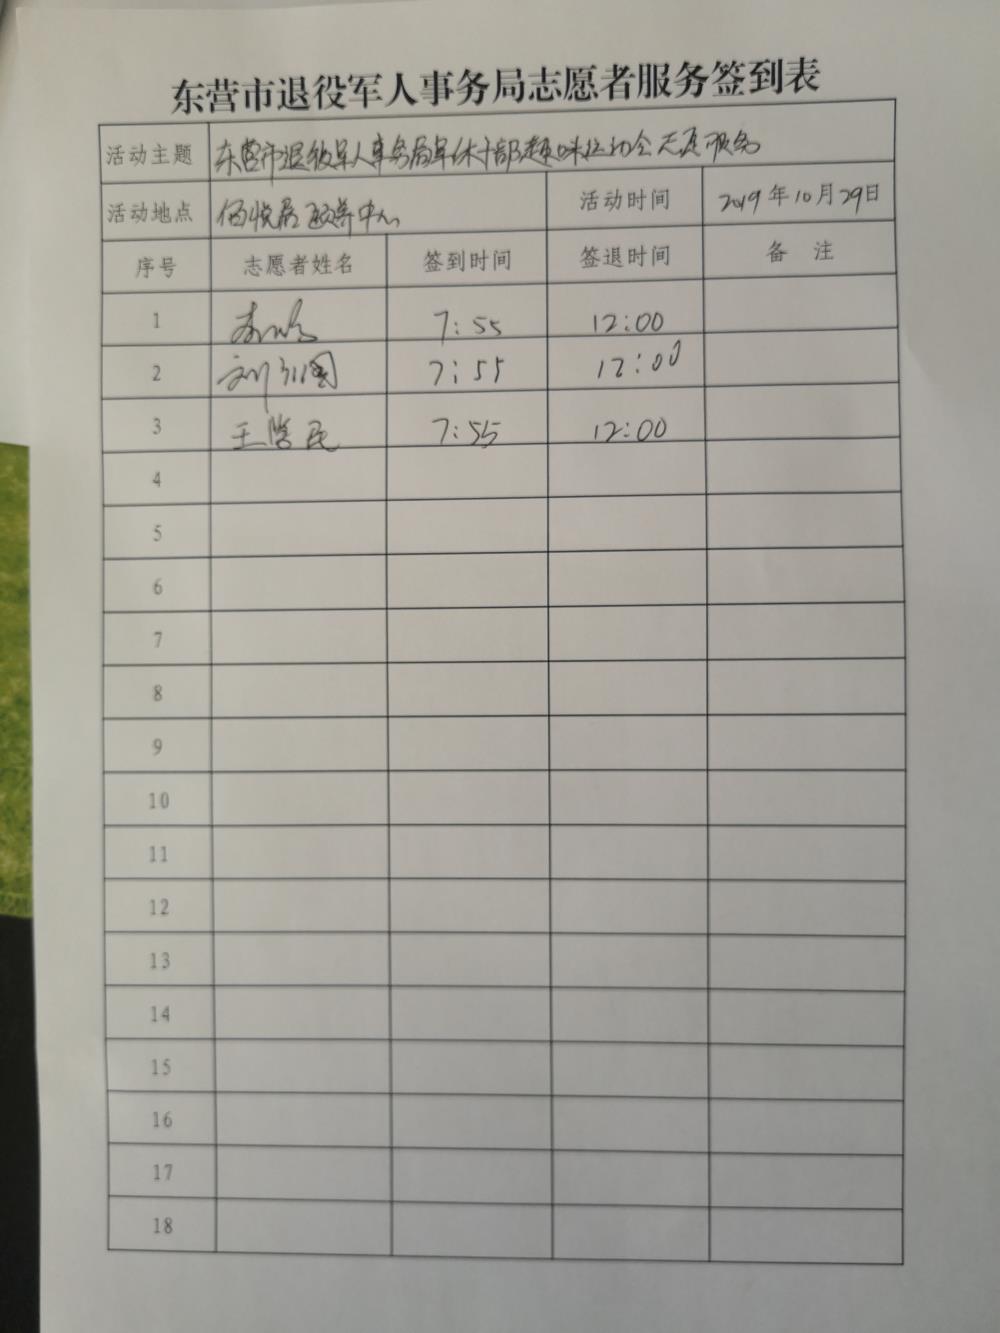 东营市退役军人事务局志愿者服务签到表
活动主题 东营市退役军人事务局军休干部趣味运动会志愿服务
活动地点 佰悦居颐养中心 活动时间 2019年10月29日
序号 志愿者姓名 签到时间 签退时间 备 注
1 7:55 12:00
2 刘 国 7:55 12:00
3 王 民 7:55 12:00
4
5
6
7
8
9
10
11
12
13
14
15
16
17
18